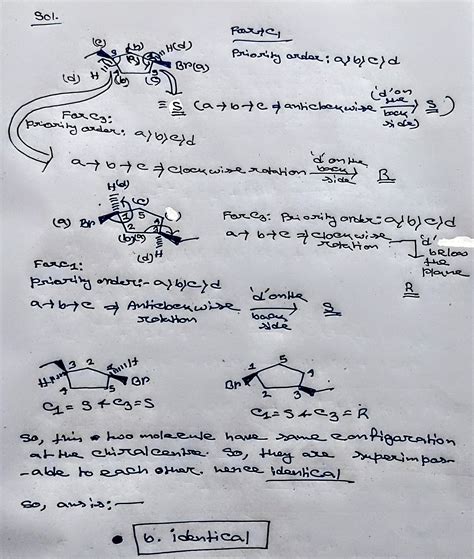 Sol.
For C1
Priority order: a>b>c>d
(c)
(b)
H(d)
Br(a)
(d) H
(b)
(c)
≡ S (a→b→c ⇒ anticlockwise ('d' on the back side) → S)
For C3:
Priority order: a>b>c>d
a→b→c ⇒ clockwise rotation 'd' on the back side → R
H(d)
(a) Br
(c)
1
5
2
(b)(a)
(d)H
For C3: Priority order: a>b>c>d
a→b→c ⇒ clockwise rotation
'd' below the plane
R
For C1:
Priority order:- a>b>c>d
a→b→c ⇒ Anticlockwise rotation 'd' on the back side → S
H
3
2
H
1
Br
4
5
5
1
4
Br
2
3
C1 = S & C3 = S
C1 = S & C3 = R
So, this two molecule have same configaration
at the chiral centre. So, they are superimpos-
-able to each other. hence identical
So, ans is:—
• b. identical